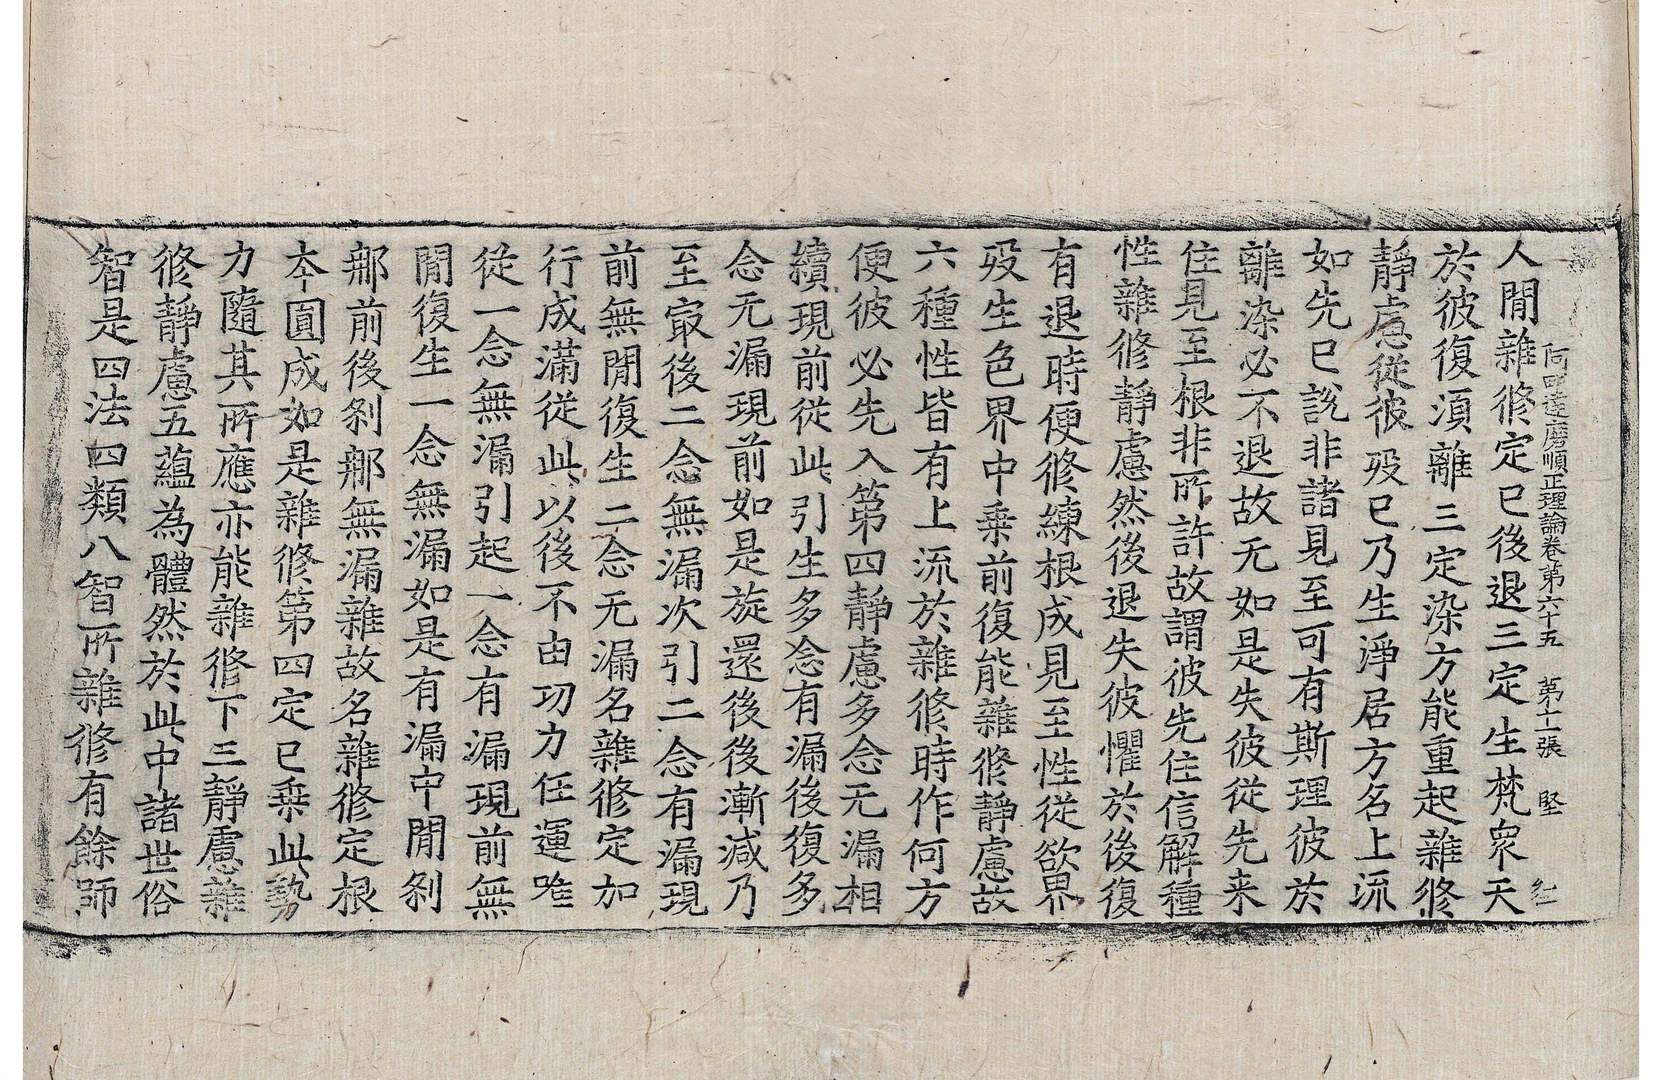 阿毗達磨順正理論卷第六十五　第十一張　堅
人閒雜修定已後退三定生梵衆天
於彼復湏離三定染方能重起雜修
靜慮從彼歿已乃生淨居方名上流
如先已說非諸見至可有斯理彼於
離染必不退故无如是失彼從先来
住見至根非所許故謂彼先住信解種
性雜修靜慮然後退失彼懼於後復
有退時便修練根成見至性從欲界
歿生色界中乘前復能雜修靜慮故
六種性皆有上流於雜修時作何方
便彼必先入第四靜慮多念无漏相
續現前從此引生多念有漏後復多
念无漏現前如是旋還後後漸減乃
至㝡後二念無漏次引二念有漏現
前無閒復生二念无漏名雜修定加
行成滿從此以後不由功力任運唯
從一念無漏引起一念有漏現前無
閒復生一念無漏如是有漏中閒刹
那前後刹那無漏雜故名雜修定根
本圓成如是雜修第四定已乘此勢
力隨其所應亦能雜修下三靜慮雜
修靜慮五蘊為體然於此中諸世俗
智是四法四類八智所雜修有餘師